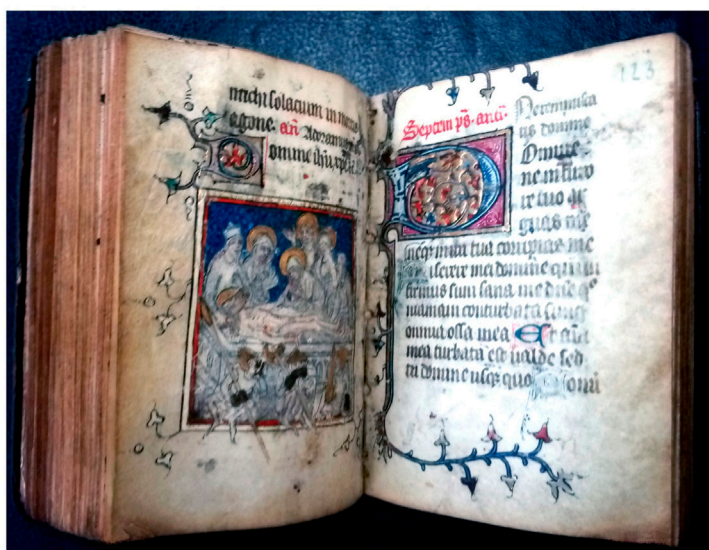 michi solacium in
agone. añ Adoramus
omine ihu xpe
123
Septem ps. anti. Ne reminisca
ris domine
Domine
ne in furo
re tuo ar
guas me
neq in ira tua corripias me
iserere mei domine
firmus sum sana me dne qo
niam conturbata sunt
omnia ossa mea Et aīa
mea turbata est ualde sed
tu domine usq quo